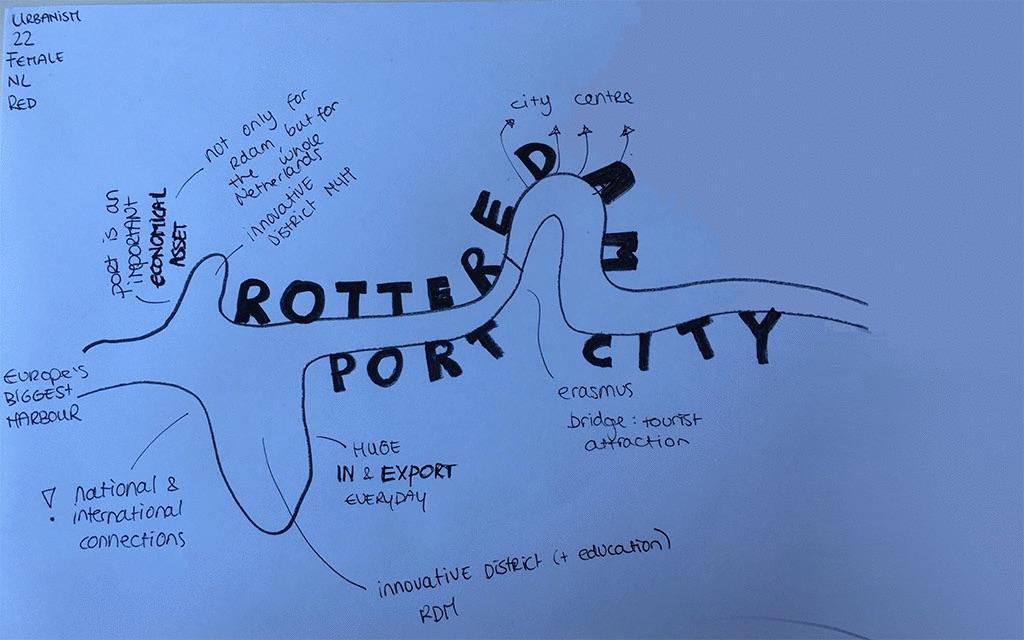 URBANISM
22
FEMALE
NL
RED
not only for
Rdam, but for
the whole
Netherlands
innovative
DISTRICT M4H
port is an
important
ECONOMICAL
ASSET
city centre
ROTTEREDAM
PORT CITY
EUROPE'S
BIGGEST
HARBOUR
erasmus
bridge: tourist
attraction
HUGE
IN & EXPORT
EVERYDAY
! national &
international
connections
innovative DISTRICT (+ education)
RDM